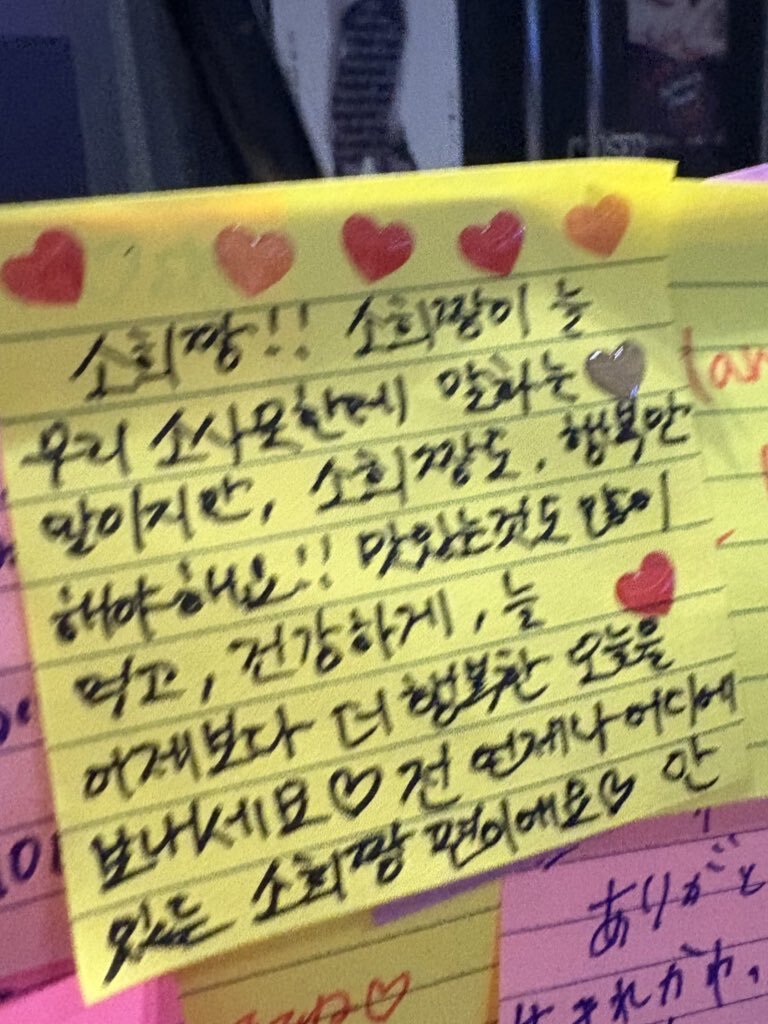 소희짱!! 소희짱이 늘
우리 소사모한테 말하는
말이지만, 소희짱도, 행복만
해야해요!! 맛있는것도 많이
먹고, 건강하게, 늘
어제보다 더 행복한 오늘을
보내세요♡ 전 언제나 어디에
있든 소희짱 편이에요♡
ありがと